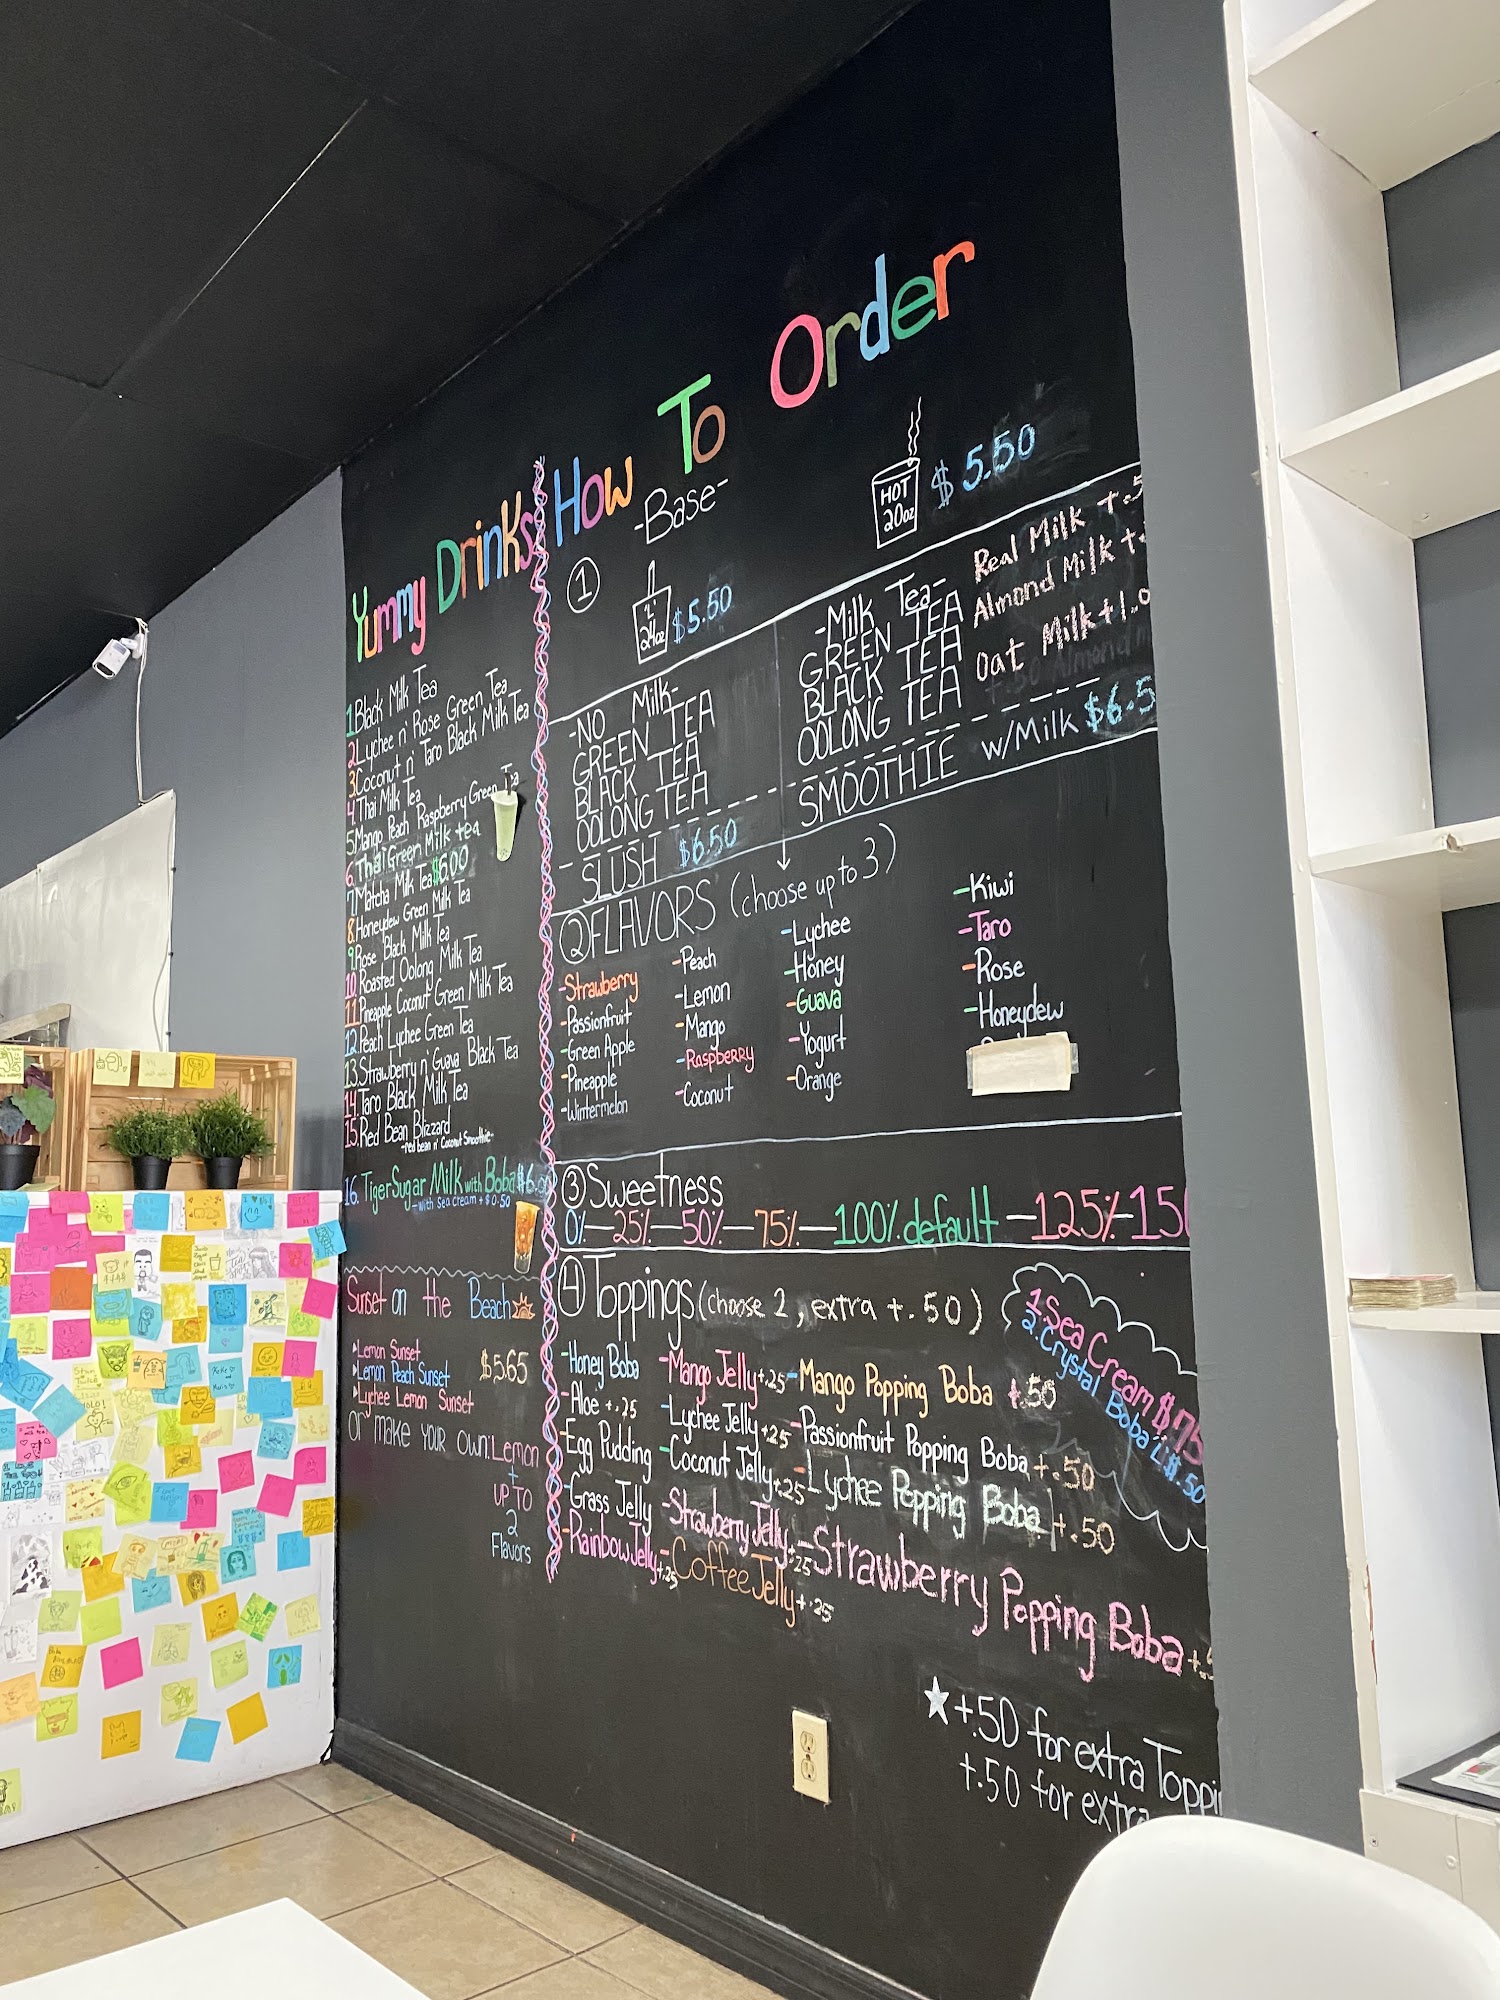 Yummy Drinks
1. Black Milk Tea
2. Lychee n' Rose Green Tea
3. Coconut n' Taro Black Milk Tea
4. Thai Milk Tea
5. Mango Peach Raspberry Green Tea
6. Thai Green Milk tea
7. Matcha Milk Tea $6.00
8. Honeydew Green Milk Tea
9. Rose Black Milk Tea
10. Roasted Oolong Milk Tea
11. Pineapple Coconut Green Milk Tea
12. Peach Lychee Green Tea
13. Strawberry n' Guava Black Tea
14. Taro Black Milk Tea
15. Red Bean Blizzard
-red bean n' Coconut Smoothie-
16. Tiger Sugar Milk with Boba $6.
-with Sea cream + $0.50
Sunset on the Beach
Lemon Sunset
Lemon Peach Sunset $5.65
Lychee Lemon Sunset
or make your own: Lemon
+
UP TO
2
Flavors
How To Order
1 -Base-
"L" 24oz $5.50
HOT 20oz $5.50
-NO Milk-
GREEN TEA
BLACK TEA
OOLONG TEA
SLUSH $6.50
-Milk Tea-
GREEN TEA
BLACK TEA
OOLONG TEA
SMOOTHIE w/Milk $6.5
Real Milk +.5
Almond Milk +.
Oat Milk +1.0
2 FLAVORS (choose up to 3)
-Strawberry
-Passionfruit
-Green Apple
-Pineapple
-Wintermelon
-Peach
-Lemon
-Mango
-Raspberry
-Coconut
-Lychee
-Honey
-Guava
-Yogurt
-Orange
-Kiwi
-Taro
-Rose
-Honeydew
3 Sweetness
0%—25%—50%—75%—100% default—125%-150
4 Toppings (choose 2, extra +.50)
-Honey Boba
-Aloe +.25
-Egg Pudding
-Grass Jelly
-Rainbow Jelly +.25
-Mango Jelly +.25
-Lychee Jelly +.25
-Coconut Jelly +.25
-Strawberry Jelly +.25
-Coffee Jelly +.25
-Mango Popping Boba +.50
-Passionfruit Popping Boba +.50
-Lychee Popping Boba +.50
-Strawberry Popping Boba +.5
1. Sea Cream $.75
2. Crystal Boba "L" $.50
+.50 for extra Toppi
+.50 for extra